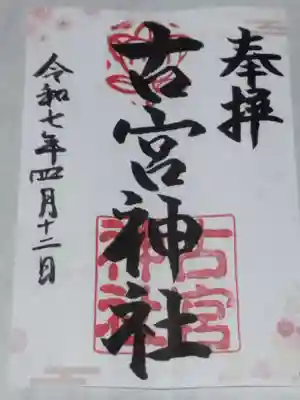 奉拝
古宮神社
古宮神社
令和七年四月十二日